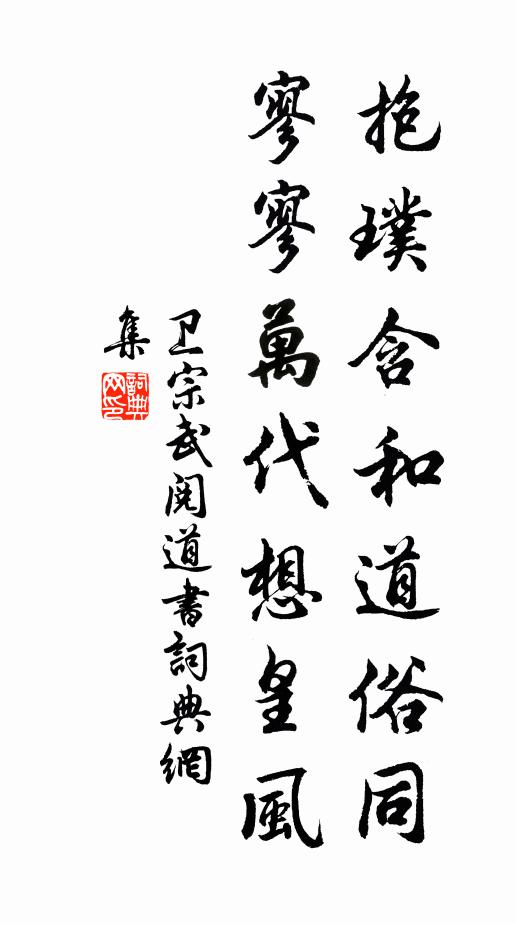 抱璞含和道俗同
寥寥萬代想皇風
卫宗武閱道書詞典網
集
詞典网印